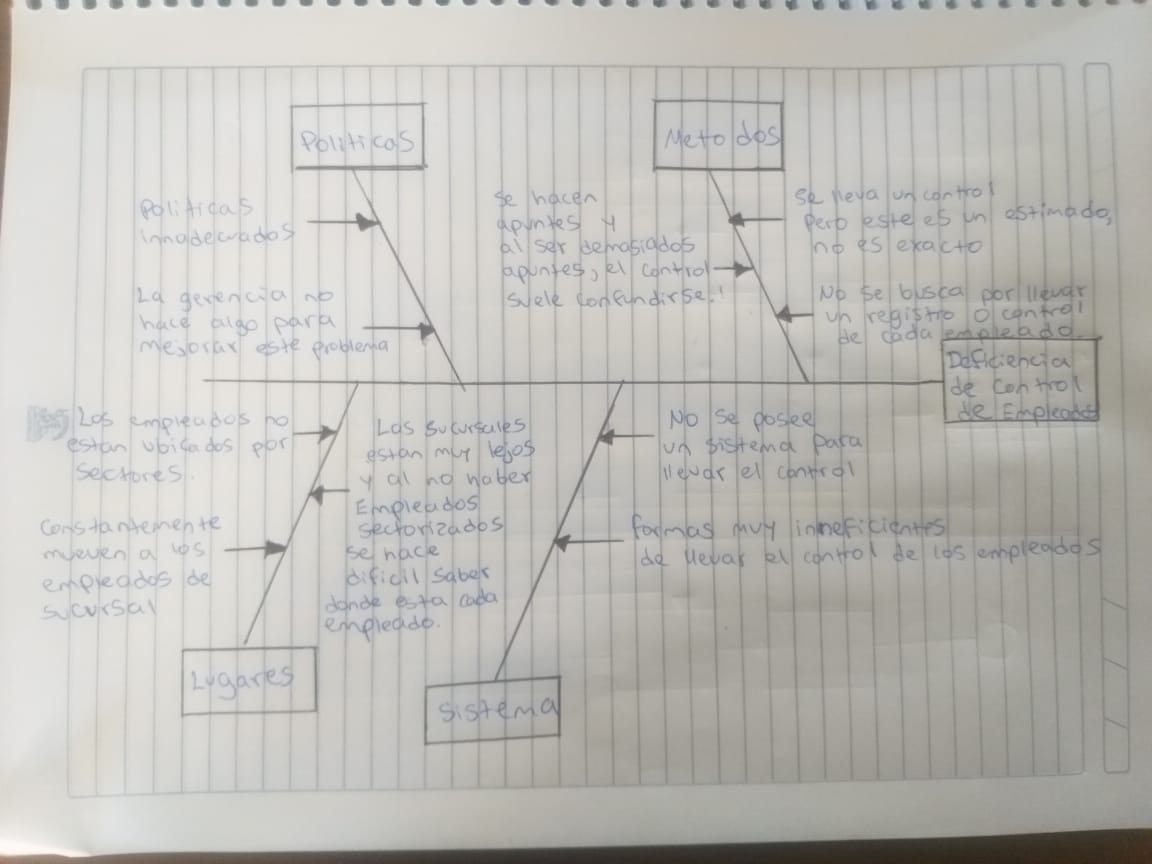 Politicas
Metodos
Politicas
innadecuados
La gerencia no
hace algo para
mejorar este problema
se hacen
apuntes y
al ser demasiados
apuntes, el control
suele confundirse.
Se lleva un control
pero este es un estimado,
no es exacto
No se busca por llevar
un registro o control
de cada empleado
Deficiencia
de control
de Empleado
Los empleados no
estan ubicados por
sectores.
Constantemente
mueven a los
empleados de
sucursal
Las sucursales
estan muy lejos
y al no haber
Empleados
sectorizados
se hace
dificil saber
donde esta cada
empleado.
No se posee
un sistema para
llevar el control
formas muy inneficientes
de llevar el control de los empleados
Lugares
Sistema